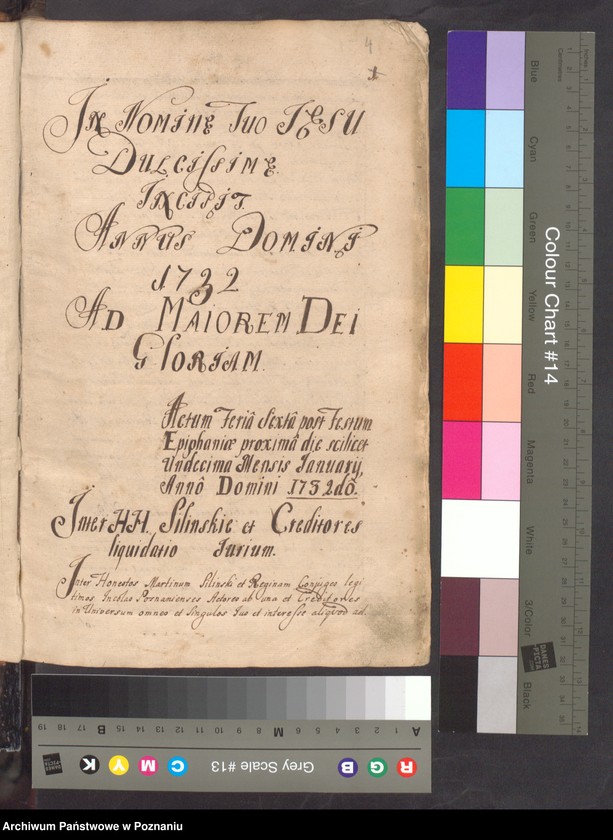 4
1
IN NOMINE TUO IESU
DULCISSIME
INCIPIT
ANNUS DOMINI
1732
AD MAIOREM DEI
GlORIAM.
Actum Feriâ Sextâ post Festum
Epiphaniæ proximâ die scilicet
Undecima Mensis January,
Annô Domini 1732dô.
Inter HH. Silinskie et Creditores
liquidatio Iurium.
Inter Honestos Martinum Silinski et Reginam Conjuges legi
timos Incolas Posnanienses Actores ab una et Creditores
in Universum omnes et singulos Ius et interesse aliquod ad
Blue
Cyan
Green
Yellow
Red
Magenta
White
3/Color
Black
Colour Chart #14
Centimetres
DANES
PICTA
.com
A 1 2 3 4 5 6 M 8 9 10 11 12 13 14 15 B 17 18 19
R G B Grey Scale #13 C M Y K
DANES
PICTA
.com
Archiwum Państwowe w Poznaniu